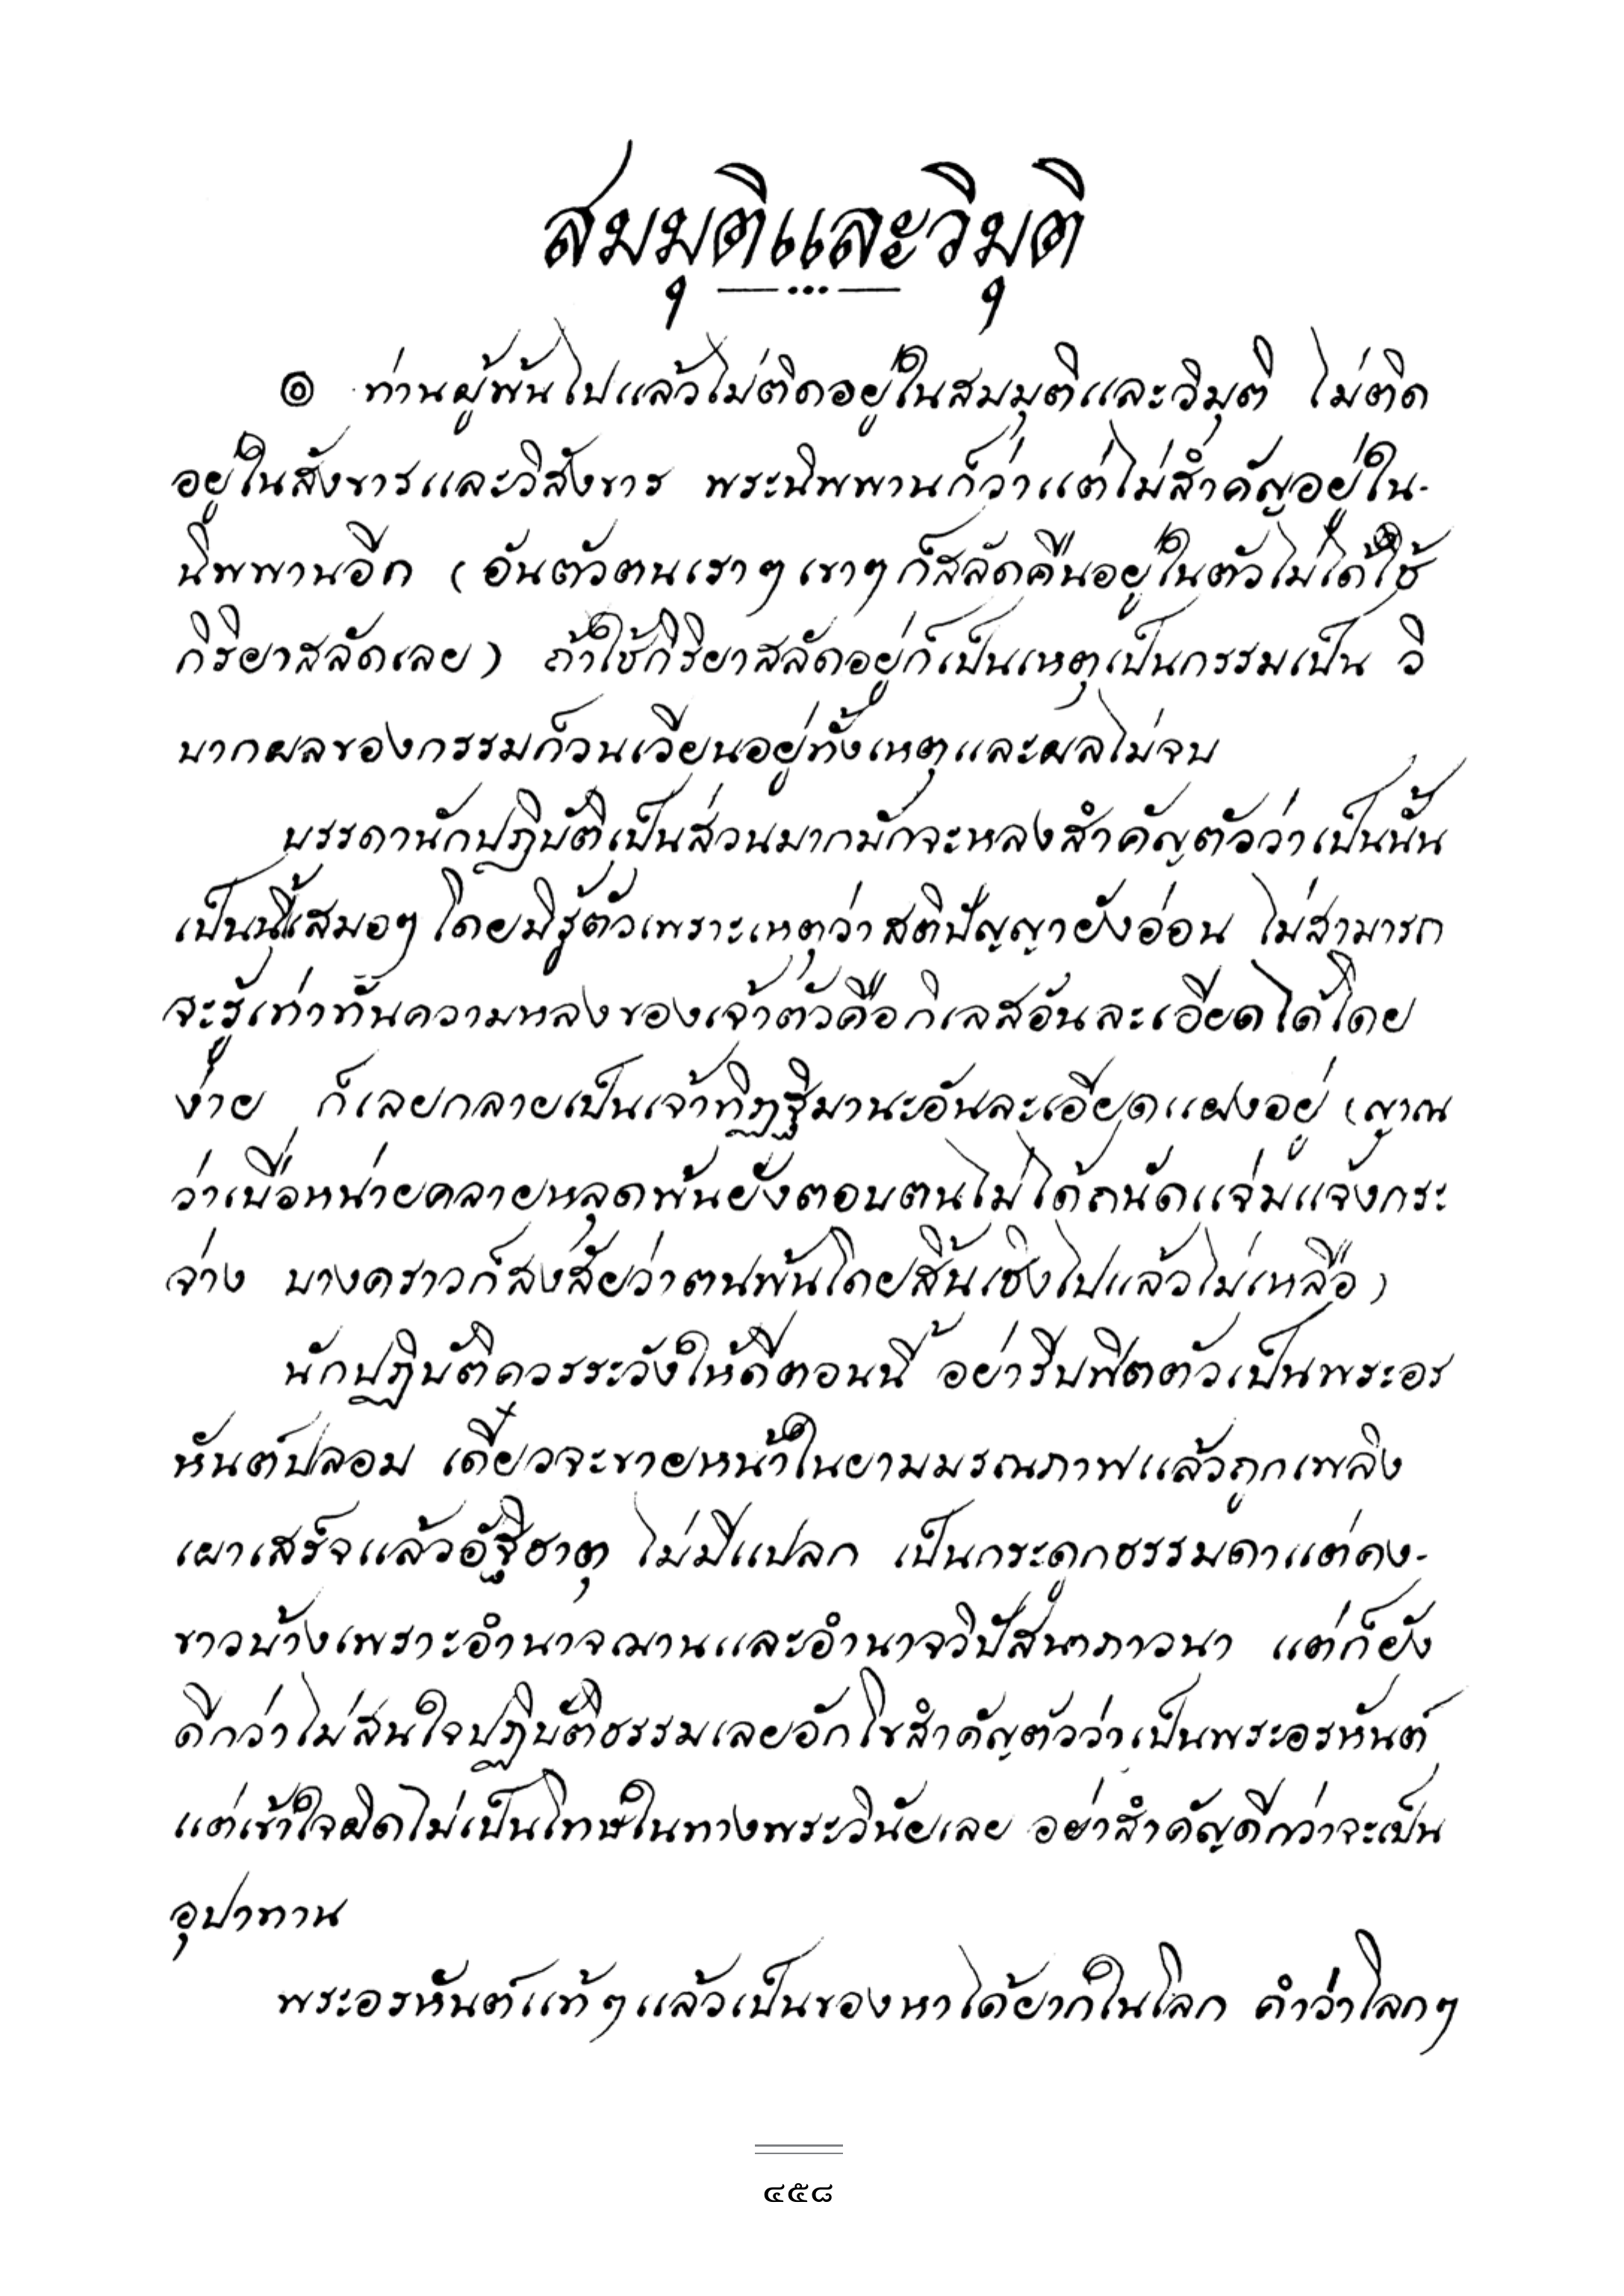 สมมุติและวิมุติ
๏ ท่านผู้พ้นไปแล้วไม่ติดอยู่ในสมมุติและวิมุติ ไม่ติด
อยู่ในสังขารและวิสังขาร พระนิพพานก็ว่าแต่ไม่สำคัญอยู่ใน-
นิพพานอีก (อันตัวตนเราๆ เขาๆ ก็สลัดคืนอยู่ในตัวไม่ได้ใช้
กิริยาสลัดเลย) ถ้าใช้กิริยาสลัดอยู่ก็เป็นเหตุเป็นกรรมเป็น วิ
บากผลของกรรมก็วนเวียนอยู่ทั้งเหตุและผลไม่จบ
บรรดานักปฏิบัติเป็นส่วนมากมักจะหลงสำคัญตัวว่าเป็นนั้น
เป็นนี้เสมอๆ โดยมิรู้ตัวเพราะเหตุว่าสติปัญญายังอ่อน ไม่สามารถ
จะรู้เท่าทันความหลงของเจ้าตัวคือกิเลสอันละเอียดได้โดย
ง่าย ก็เลยกลายเป็นเจ้าทิฏฐิมานะอันละเอียดแฝงอยู่ (ญาณ
ว่าเบื่อหน่ายคลายหลุดพ้นยังตอบตนไม่ได้ถนัดแจ่มแจ้งกระ
จ่าง บางคราวก็สงสัยว่าตนพ้นโดยสิ้นเชิงไปแล้วไม่เหลือ)
นักปฏิบัติควรระวังให้ดีตอนนี้ อย่ารีบฟิตตัวเป็นพระอร
หันต์ปลอม เดี๋ยวจะขายหน้าในยามมรณภาพแล้วถูกเพลิง
เผาเสร็จแล้วอัฐิธาตุ ไม่มีแปลก เป็นกระดูกธรรมดาแต่คง-
ขาวบ้างเพราะอำนาจฌานและอำนาจวิปัสนาภาวนา แต่ก็ยัง
ดีกว่าไม่สนใจปฏิบัติธรรมเลยอักโขสำคัญตัวว่าเป็นพระอรหันต์
แต่เข้าใจผิดไม่เป็นโทษในทางพระวินัยเลย อย่าสำคัญดีกว่าจะเป็น
อุปาทาน
พระอรหันต์แท้ๆ แล้วเป็นของหาได้ยากในโลก คำว่าโลกๆ
๔๕๘